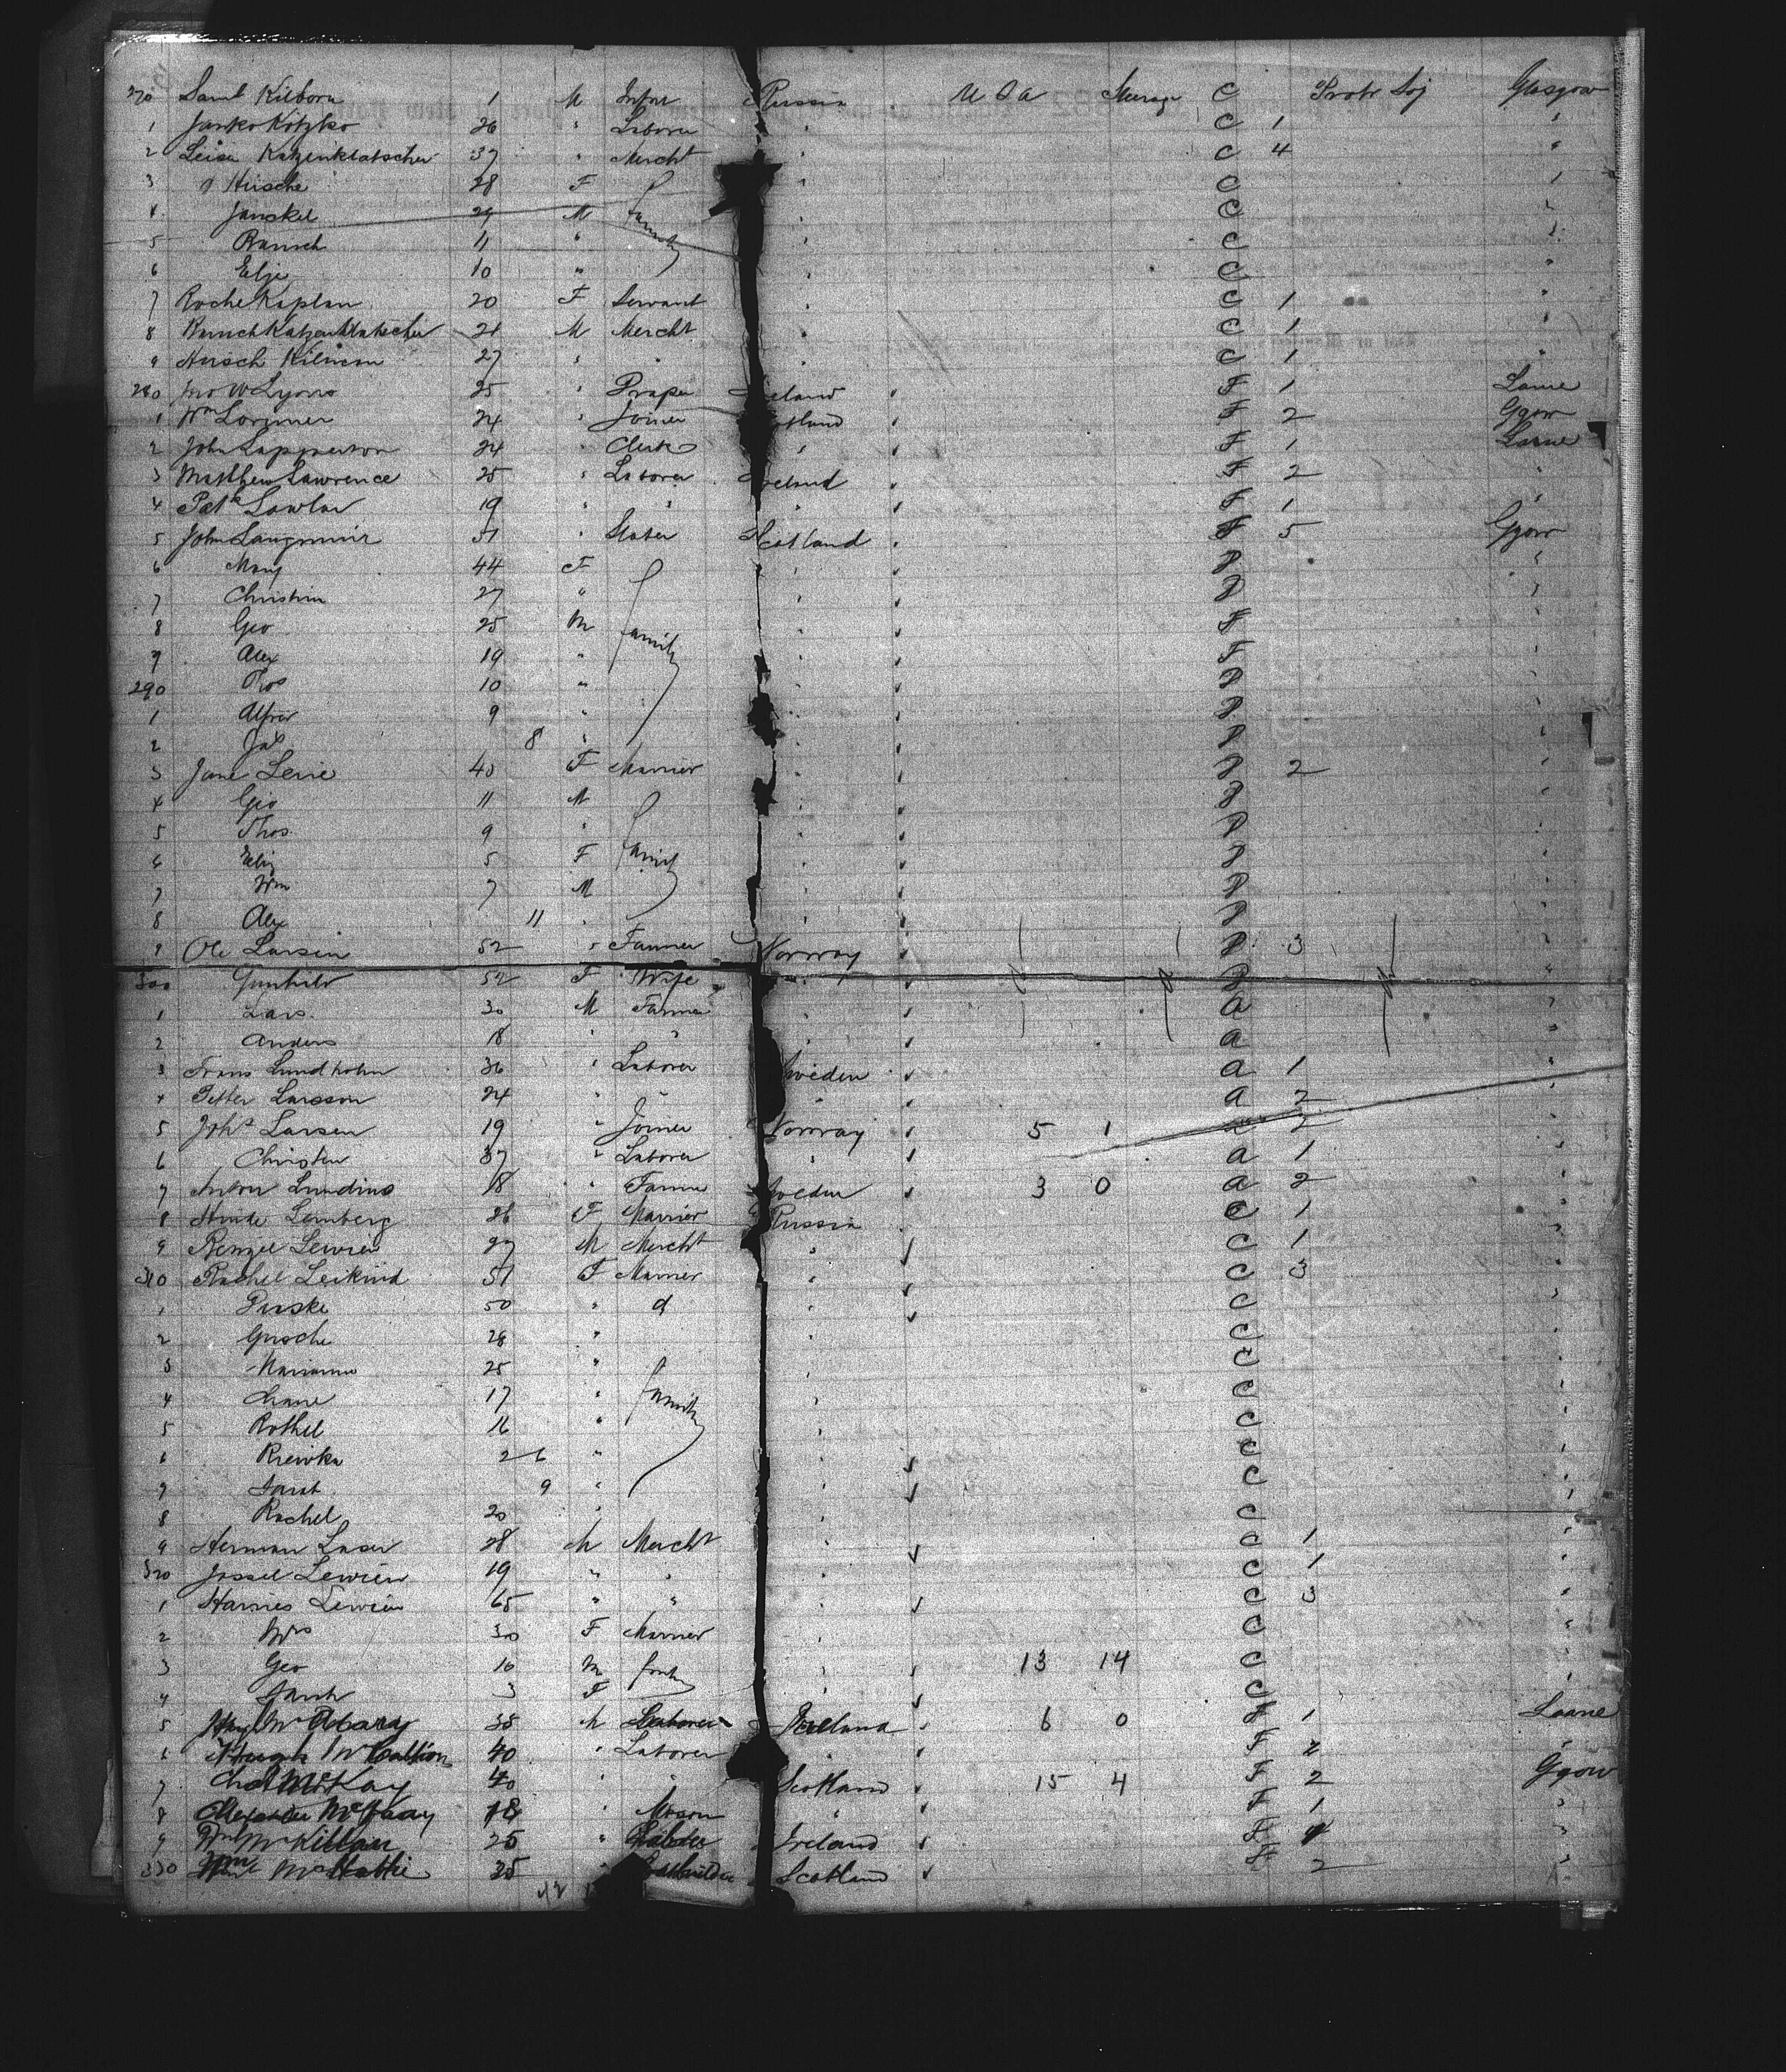 270 Saml Kilborn 1 M Infnt Russia U S A Steerage C Protr Soj Glasgow
1 Janko Kotzko 26 " Laborer " C 1 "
2 Leiser Katzenklatscher 37 " Mercht " C 4 "
3 " Hirsche 28 F " C
4 Janskel 29 M family C "
5 11 " " C "
6 Elje 10 " " C "
7 Roche Kaplan 20 F Servant " C 1 "
8 21 M Mercht " C 1 "
9 Hirsch Kilman 27 " " C 1 "
280 Jno W Lyons 25 " Draper Ireland F 1 Larne
1 Wm Lorimer 24 " Joiner Scotland F 2 Ggow
2 John Lapperton 24 " Clerk " F 1 Larne
3 Matthew Lawrence 25 " Laborer Ireland F 2 "
4 Patk Lawlor 19 " " " F 1 "
5 John Langmuir 51 " Slater Scotland F 5 Ggow
6 Mary 44 F " P "
7 Christina 27 " " P "
8 Geo 25 M family " F "
9 Alex 19 " " F "
290 Thos 10 " " P "
1 Alfred 9 " " P "
2 Jas 8 " " P "
3 Jane 40 F Married " P 2 "
4 Geo 11 M " P "
5 Thos 9 " " P "
6 Eliz 5 F family " P "
7 Wm 7 M " P "
8 Alex 11 " " P "
9 Ole Larsen 52 " Farmer Norway P 3 "
300 Gunhild 52 F Wife " P "
1 Lars 30 M Farmer " A "
2 Anders 18 " " " A "
3 Frans Lundholm 36 " Laborer Sweden A 1 "
4 Petter Larsson 24 " " " A 2
5 Johs Larsen 19 " Joiner Norway 5 1 A 2
6 Christen 37 " Laborer " A 1 "
7 Anton Lundins 18 " Farmer Sweden 3 0 A 2 "
8 Hinde Lemberg 26 F Married Russia C 1 "
9 Lewien 27 M Mercht " C 1 "
310 Rachel Leikind 51 F Married " C 3 "
1 50 " d " C "
2 Grische 28 " " C "
3 Marianne 25 " " C "
4 Chane 17 " family " C "
5 Rothel 16 " " C "
6 Riewka 26 " " C "
7 Sarah 9 " " C "
8 Rachel 20 " " C "
9 Herman Laser 28 M Mercht " C 1 "
320 Jossel Lewien 19 " " " C 1 "
1 Harries Lewien 65 " " " C 3 "
2 Mrs 30 F Married " C "
3 Geo 10 M family " 13 14 C "
4 Sarah 3 F " C "
5 38 M Laborer Ireland 6 0 F 1 Larne
6 40 " Laborer " F 2 "
7 Chas McKay 40 " " Scotland 15 4 F 2 Ggow
8 Alexander McKay 18 " Mason " F 1 "
9 25 " Ireland F "
330 Wm 35 " Scotland F 2 "
42